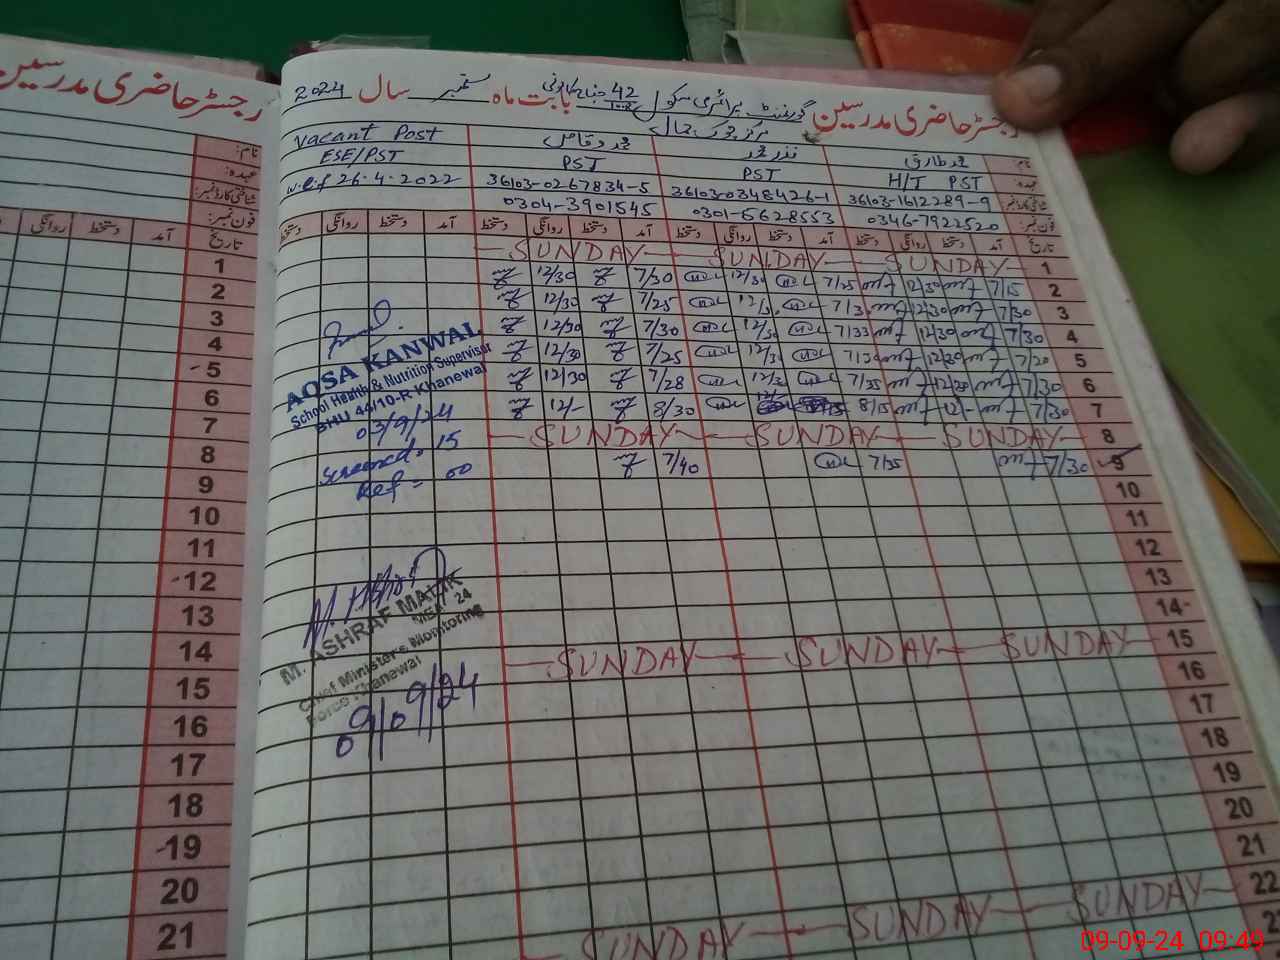 رجسٹر حاضری مدرسین گورنمنٹ پرائمری سکول 42 بابت ماہ ستمبر سال 2024
رجسٹر حاضری مدرسین
مرکز چوک جمال
نام: محمد طارق نذر محمد محمد وقاص Vacant Post
عہدہ: H/T PST PST PST ESE/PST
شناختی کارڈ نمبر: 36103-1612289-9 36103-0348426-1 36103-0267834-5 w.e.f 26.4.2022
فون نمبر: 0346-7922520 0301-5628553 0304-3901545
تاریخ آمد دستخط روانگی دستخط آمد دستخط روانگی دستخط آمد دستخط روانگی دستخط آمد دستخط روانگی دستخط
1 SUNDAY SUNDAY SUNDAY
2 7/15 12/30 7/25 12/30 7/30 12/30
3 7/30 12/30 7/25 12/30
4 7/30 12/30 7/30 12/30
5 7/20 12/30 7/25 12/30
6 7/30 12/20 7/25 7/28 12/30
7 7/30 12/- 8/15 8/30 12/-
8 SUNDAY SUNDAY SUNDAY
9 7/30 7/35 7/40
10
11
12
13
14
15 SUNDAY SUNDAY SUNDAY
16
17
18
19
20
21
22 SUNDAY SUNDAY SUNDAY
AQSA KANWAL
School Health & Nutrition Supervisor
BHU 44/10-R Khanewal
03/9/24
Screened. 15
Ref - 00
M. ASHRAF MALIK
MEA 24
Chief Minister's Monitoring
Force Khanewal
09/09/24
نام:
عہدہ:
شناختی کارڈ نمبر:
فون نمبر:
تاریخ آمد دستخط روانگی
1
2
3
4
5
6
7
8
9
10
11
12
13
14
15
16
17
18
19
20
21
09-09-24 09:49